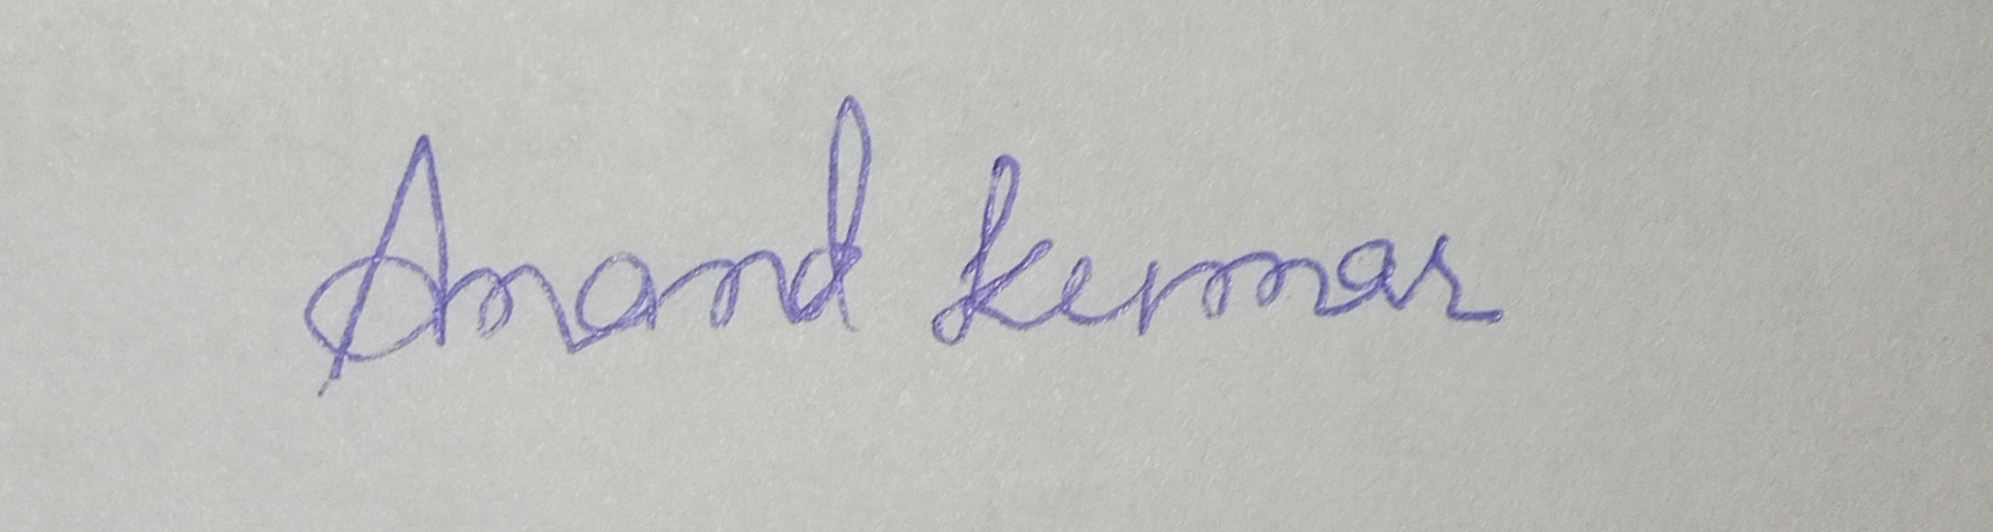 Anand Kumar